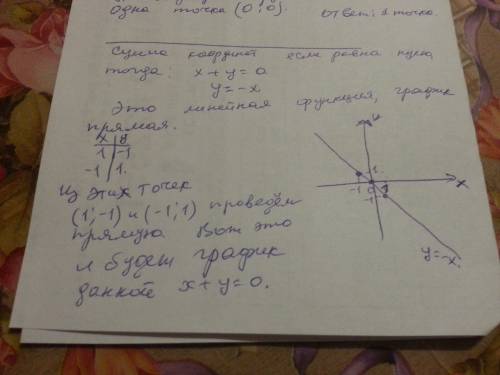 одна точка (0;0). Ответ: 1 точка.
Сумма координат если равна нулю,
тогда: x + y = 0
y = -x
Это линейная функция, график
прямая.
x y
1 -1
-1 1.
Из этих точек
(1;-1) и (-1;1) проведём
прямую Вот это
и будет график
данной x + y = 0.
y
1
-1 0 1 x
-1
y = -x.